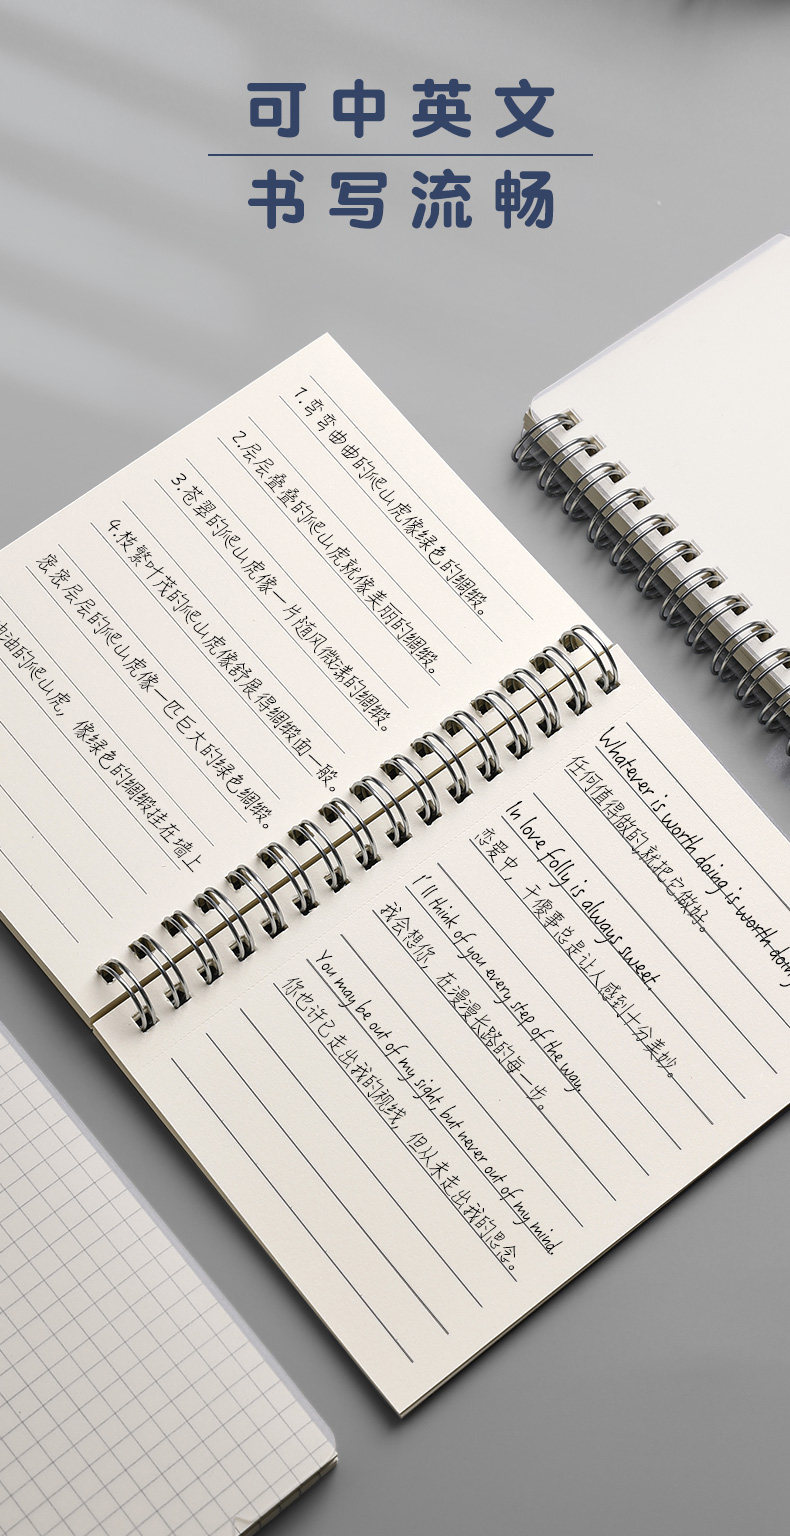 可中英文
书写流畅
1.弯弯曲曲的爬山虎像绿色的绸缎。
2.层层叠叠的爬山虎就像美丽的绸缎。
3.苍翠的爬山虎像一片随风微漾的绸缎。
4.枝繁叶茂的爬山虎像舒展得绸缎面一般。
密密层层的爬山虎像一匹巨大的绿色绸缎。
油的爬山虎，像绿色的绸缎挂在墙上
Whatever is worth doing is worth doing
任何值得做的,就把它做好。
In love folly is always sweet.
恋爱中，干傻事总是让人感到十分美妙。
I'll think of you every step of the way.
我会想你，在漫漫长路的每一步。
You may be out of my sight, but never out of my mind.
你也许已走出我的视线，但从未走出我的思念。